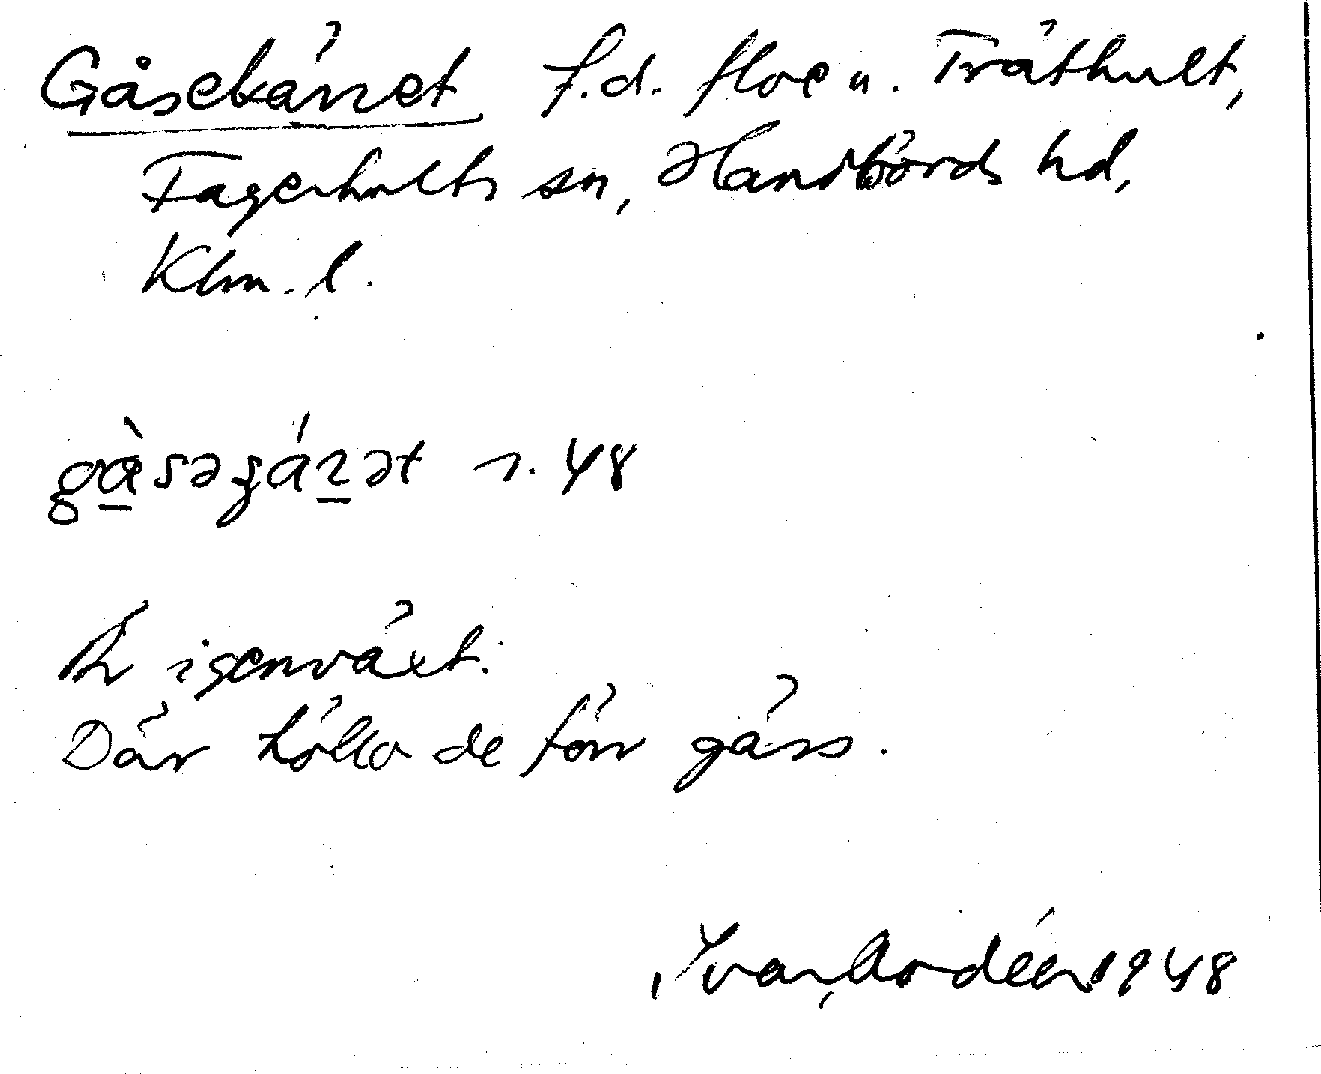 Gåsekärret f.d. floe u. Träthult,
Fagerhults sn, Handbörds hd,
Klm. l.
48
Är igenväxt.
Där hölla de förr gäss.
Ivar Modéer 1948